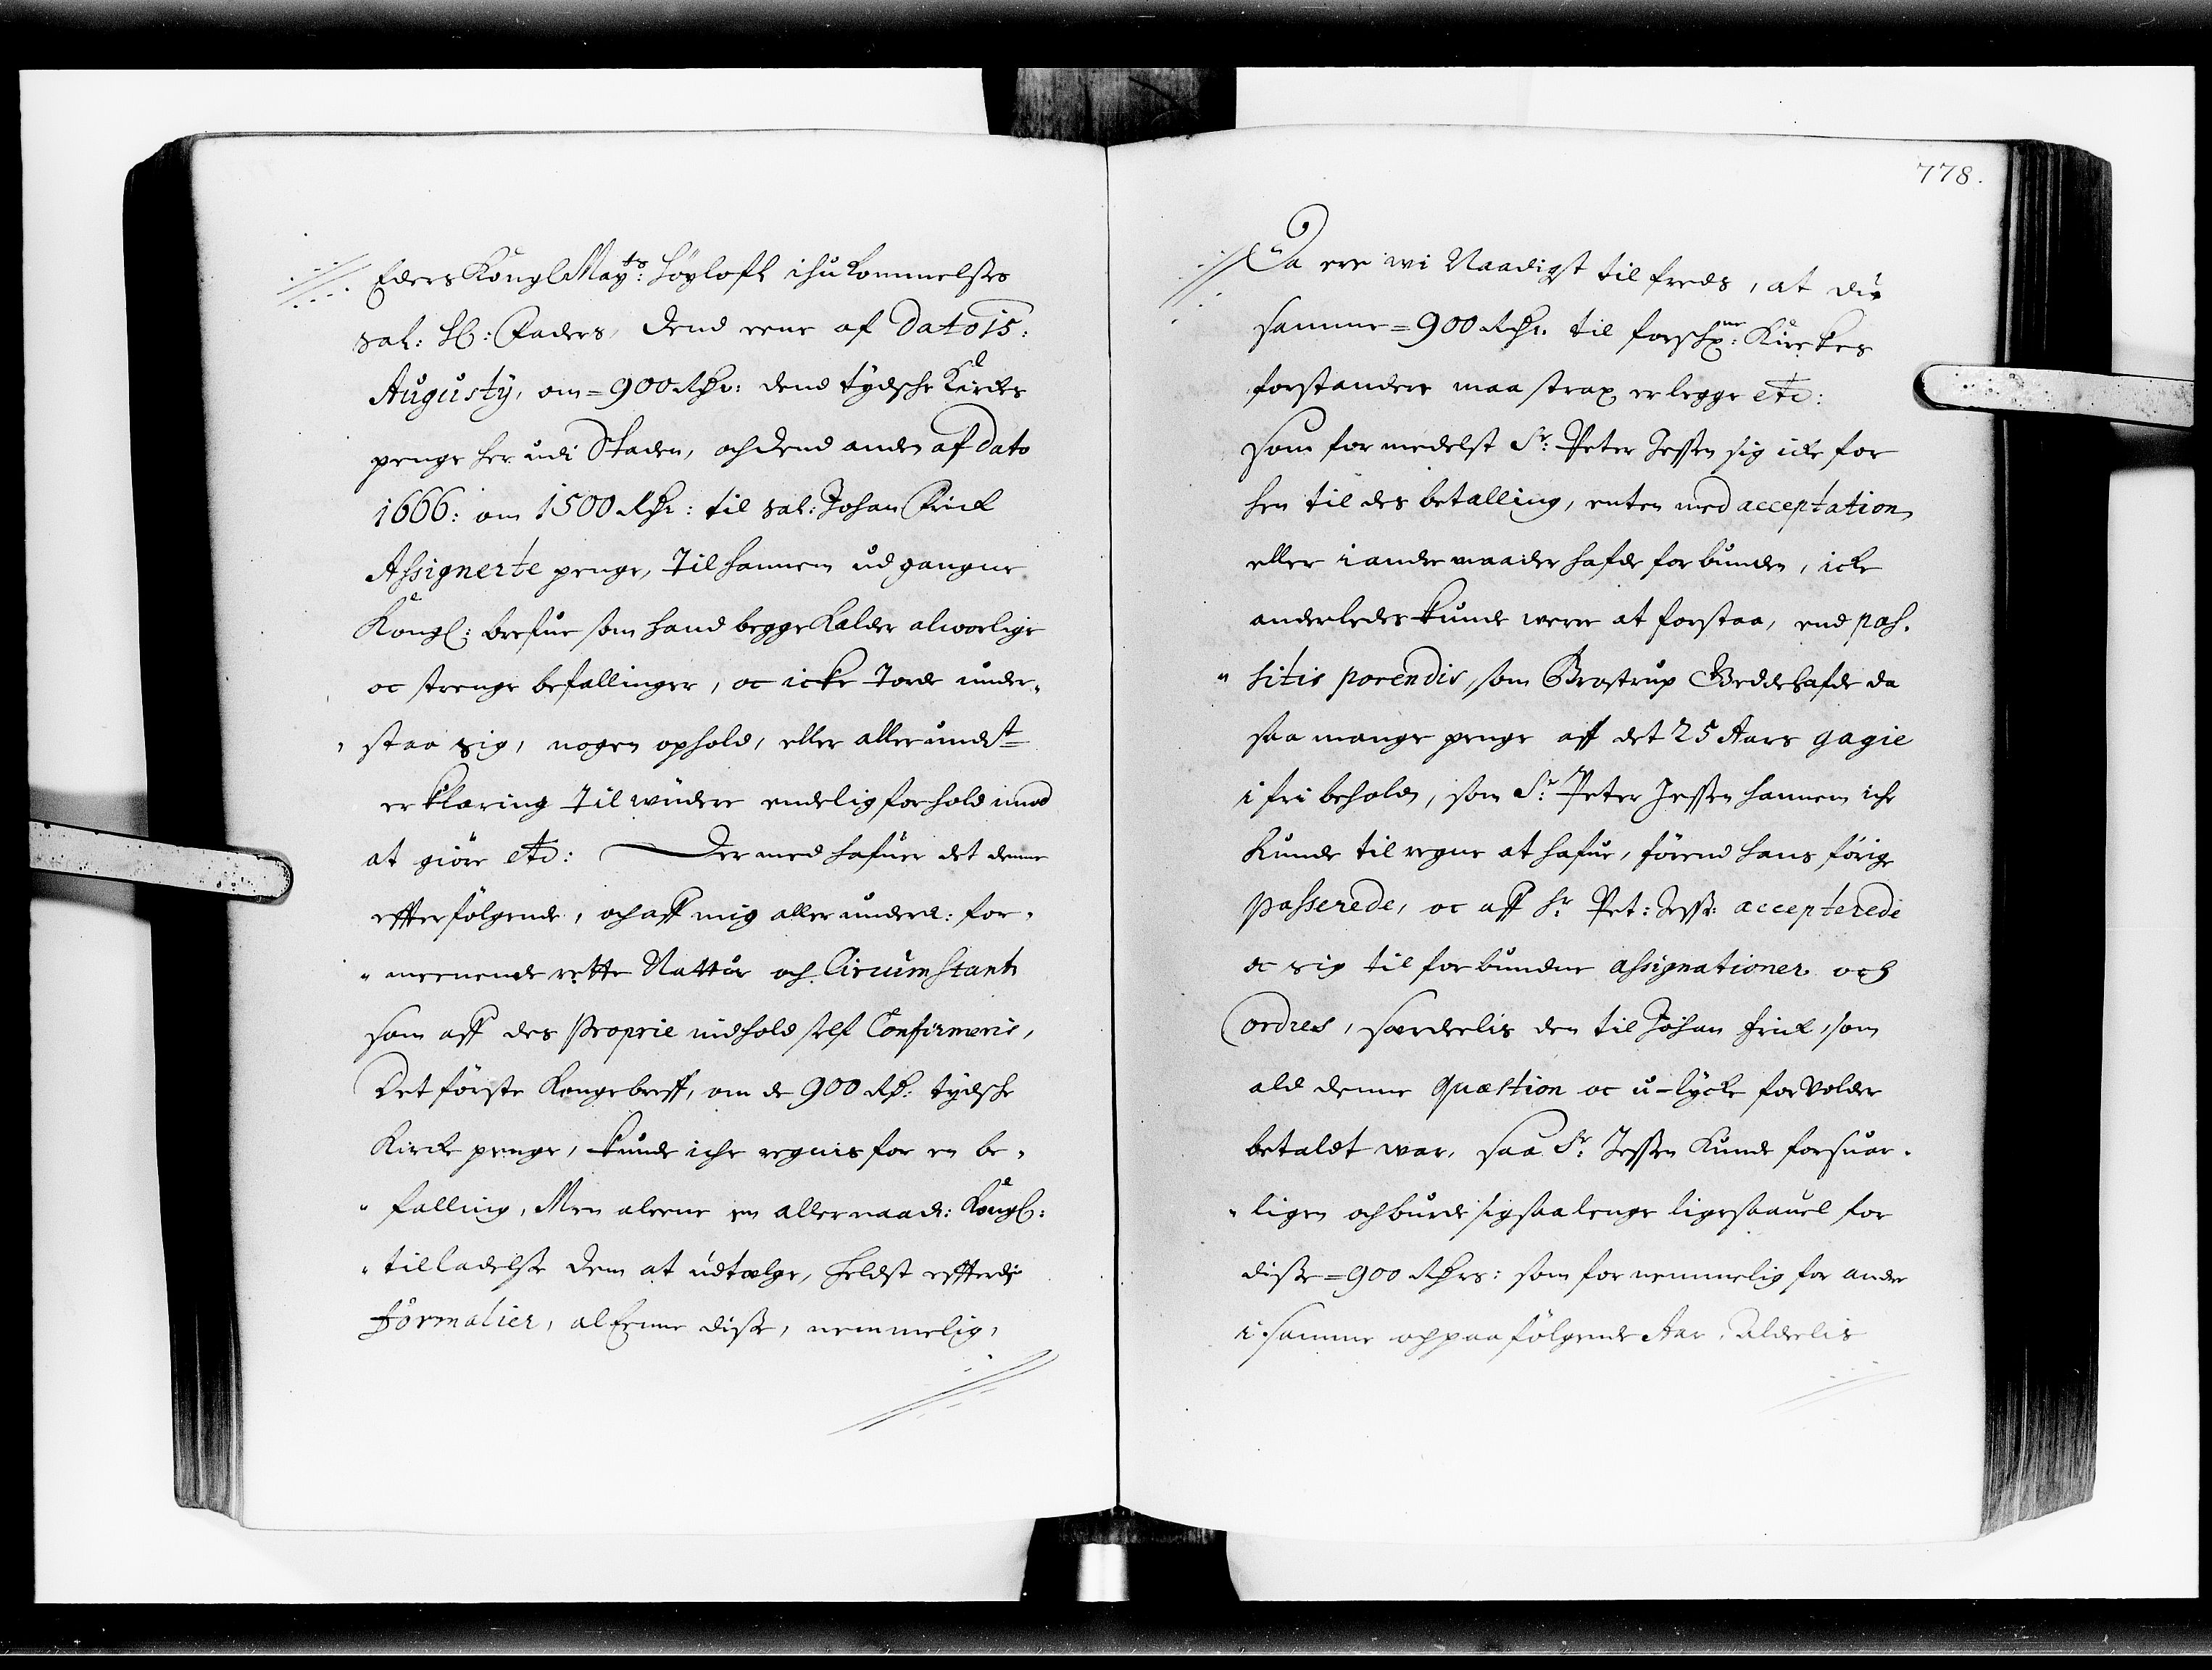 778.
Eders Kongl Mayts: höylofl ihukommelses
sal: H: Faders, dend eene af Dato 15:
Augusty, om = 900 Rdr: dend tydsche Kirckes
penge her udi Staden, och dend anden af Dato
1666: om 1500 Rdr: til sal: Johan Frick
Assignerte penge, til hannem udgangne
Kongl: brefue som hand begge kalder alworlige
oc strenge befallinger, oc icke torde under¬
staa sig, nogen ophold, eller allerundt
erklæring til widere endelig forhold imod
at giöre etc: Der med hafuer det denne
effterfölgende, och aff mig allerunderd: for¬
meenende rette Nattur och Circumstants
som aff des Proprie indhold self Confirmeris,
Det förste Kongebreff, om de 900 Rd: tydsche
Kircke penge, kunde iche regnis for en be¬
falling, Men aleene en allernaad: Kongl:
tilladelse dem at udtælge, heldst effterdi
Formalier, al eene disse, nemmelig,
Da ere wi Naadigst tilfreds, at du
samme = 900 Rdr. til forschne: Kirckes
forstandere maa strax erlegge etc:
som formedelst Sr: Peter Jessen sig icke for
hen til des betalling, enten med acceptation
eller i andre maader hafde forbunden, icke
anderledes kunde were at forstaa, end pos¬
sitis ponendis, som Brostrup Gedde hafde da
saa mange penge aff det 25 Aars gagie
i fri behold, som Sr: Peter Jessen hannem iche
kunde tilregne at hafue, förend hans förige
passerede, oc aff Sr Pet: Jess: accepterede
oc sig til forbundne assignationer och
ordres, særdeelis den til Johan Frick, som
ald denne quæstion oc u-lycke forvolder
betaldt war, saa Sr: Jessen kunde forsuar¬
ligen och burde sig saalenge ligesaauel for
disse = 900 Rdrs: som fornemmelig for andre
i samme och paafölgende Aar, Aldeelis